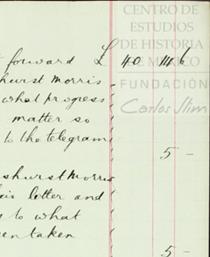 CENTRO DE
ESTUDIOS
DE HISTORIA
DE MÉXICO
FUNDACIÓN
Carlos Slim
forward £ 40 14 6
hurst Morris
what progress
matter so
to the telegram
5 -
shurst Morris
his letter and
to what
en taken
5 -